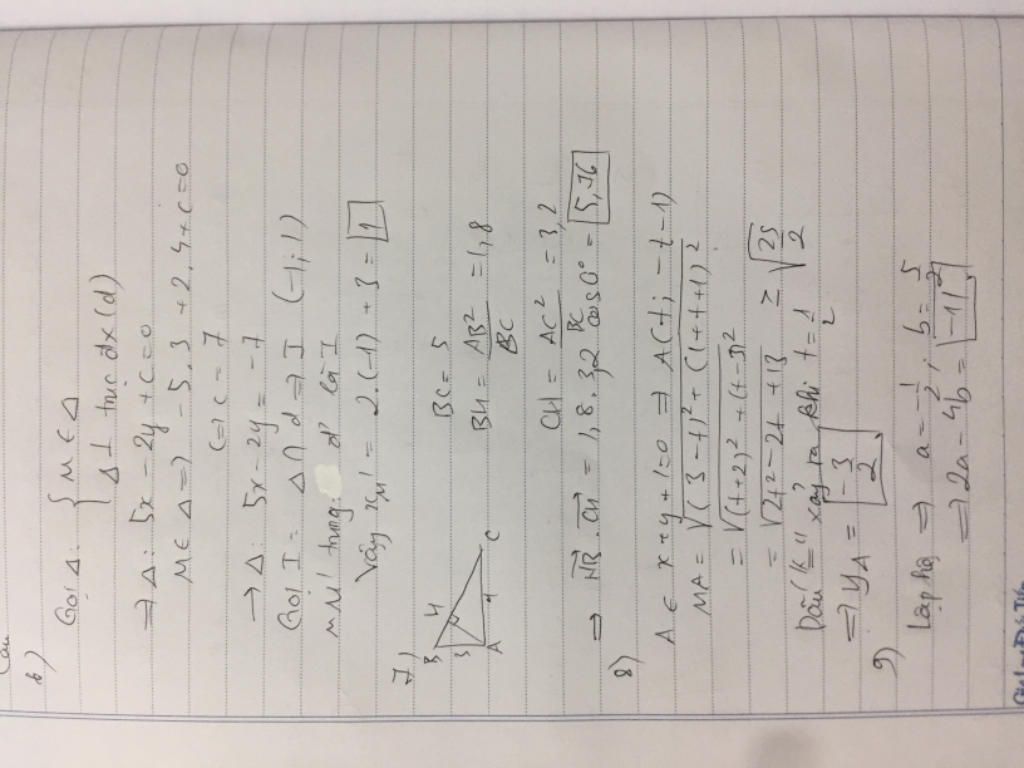 Câu
6)
Gọi Δ: { M ∈ Δ
Δ ⊥ trục đx (d)
⇒ Δ: 5x - 2y + c = 0
M ∈ Δ ⇒ - 5. 3 + 2. 4 + c = 0
(=) c = 7
→ Δ: 5x - 2y = -7
Gọi I = Δ ∩ d ⇒ I (-1; 1)
MM' trung. đ' là I
Vậy x_M' = 2.(-1) + 3 = 1
7)
B H C A 3 4
BC = 5
BH = AB²/BC = 1,8
CH = AC²/BC = 3,2
⇒ HB . CH = 1,8. 3,2 cos 0° = 5,76
8)
A ∈ x + y + 1 = 0 ⇒ A (t; -t - 1)
MA = √((3 - t)² + (1 + t + 1)²
= √((t+2)² + (t-3)²
= √(2t² - 2t + 13 ≥ √(25/2)
Dấu "=" xảy ra khi t = 1/2
⇒ y_A = -3/2
9)
Lập hệ ⇒ a = -1/2, b = 5/2
⇒ 2a - 4b = -11